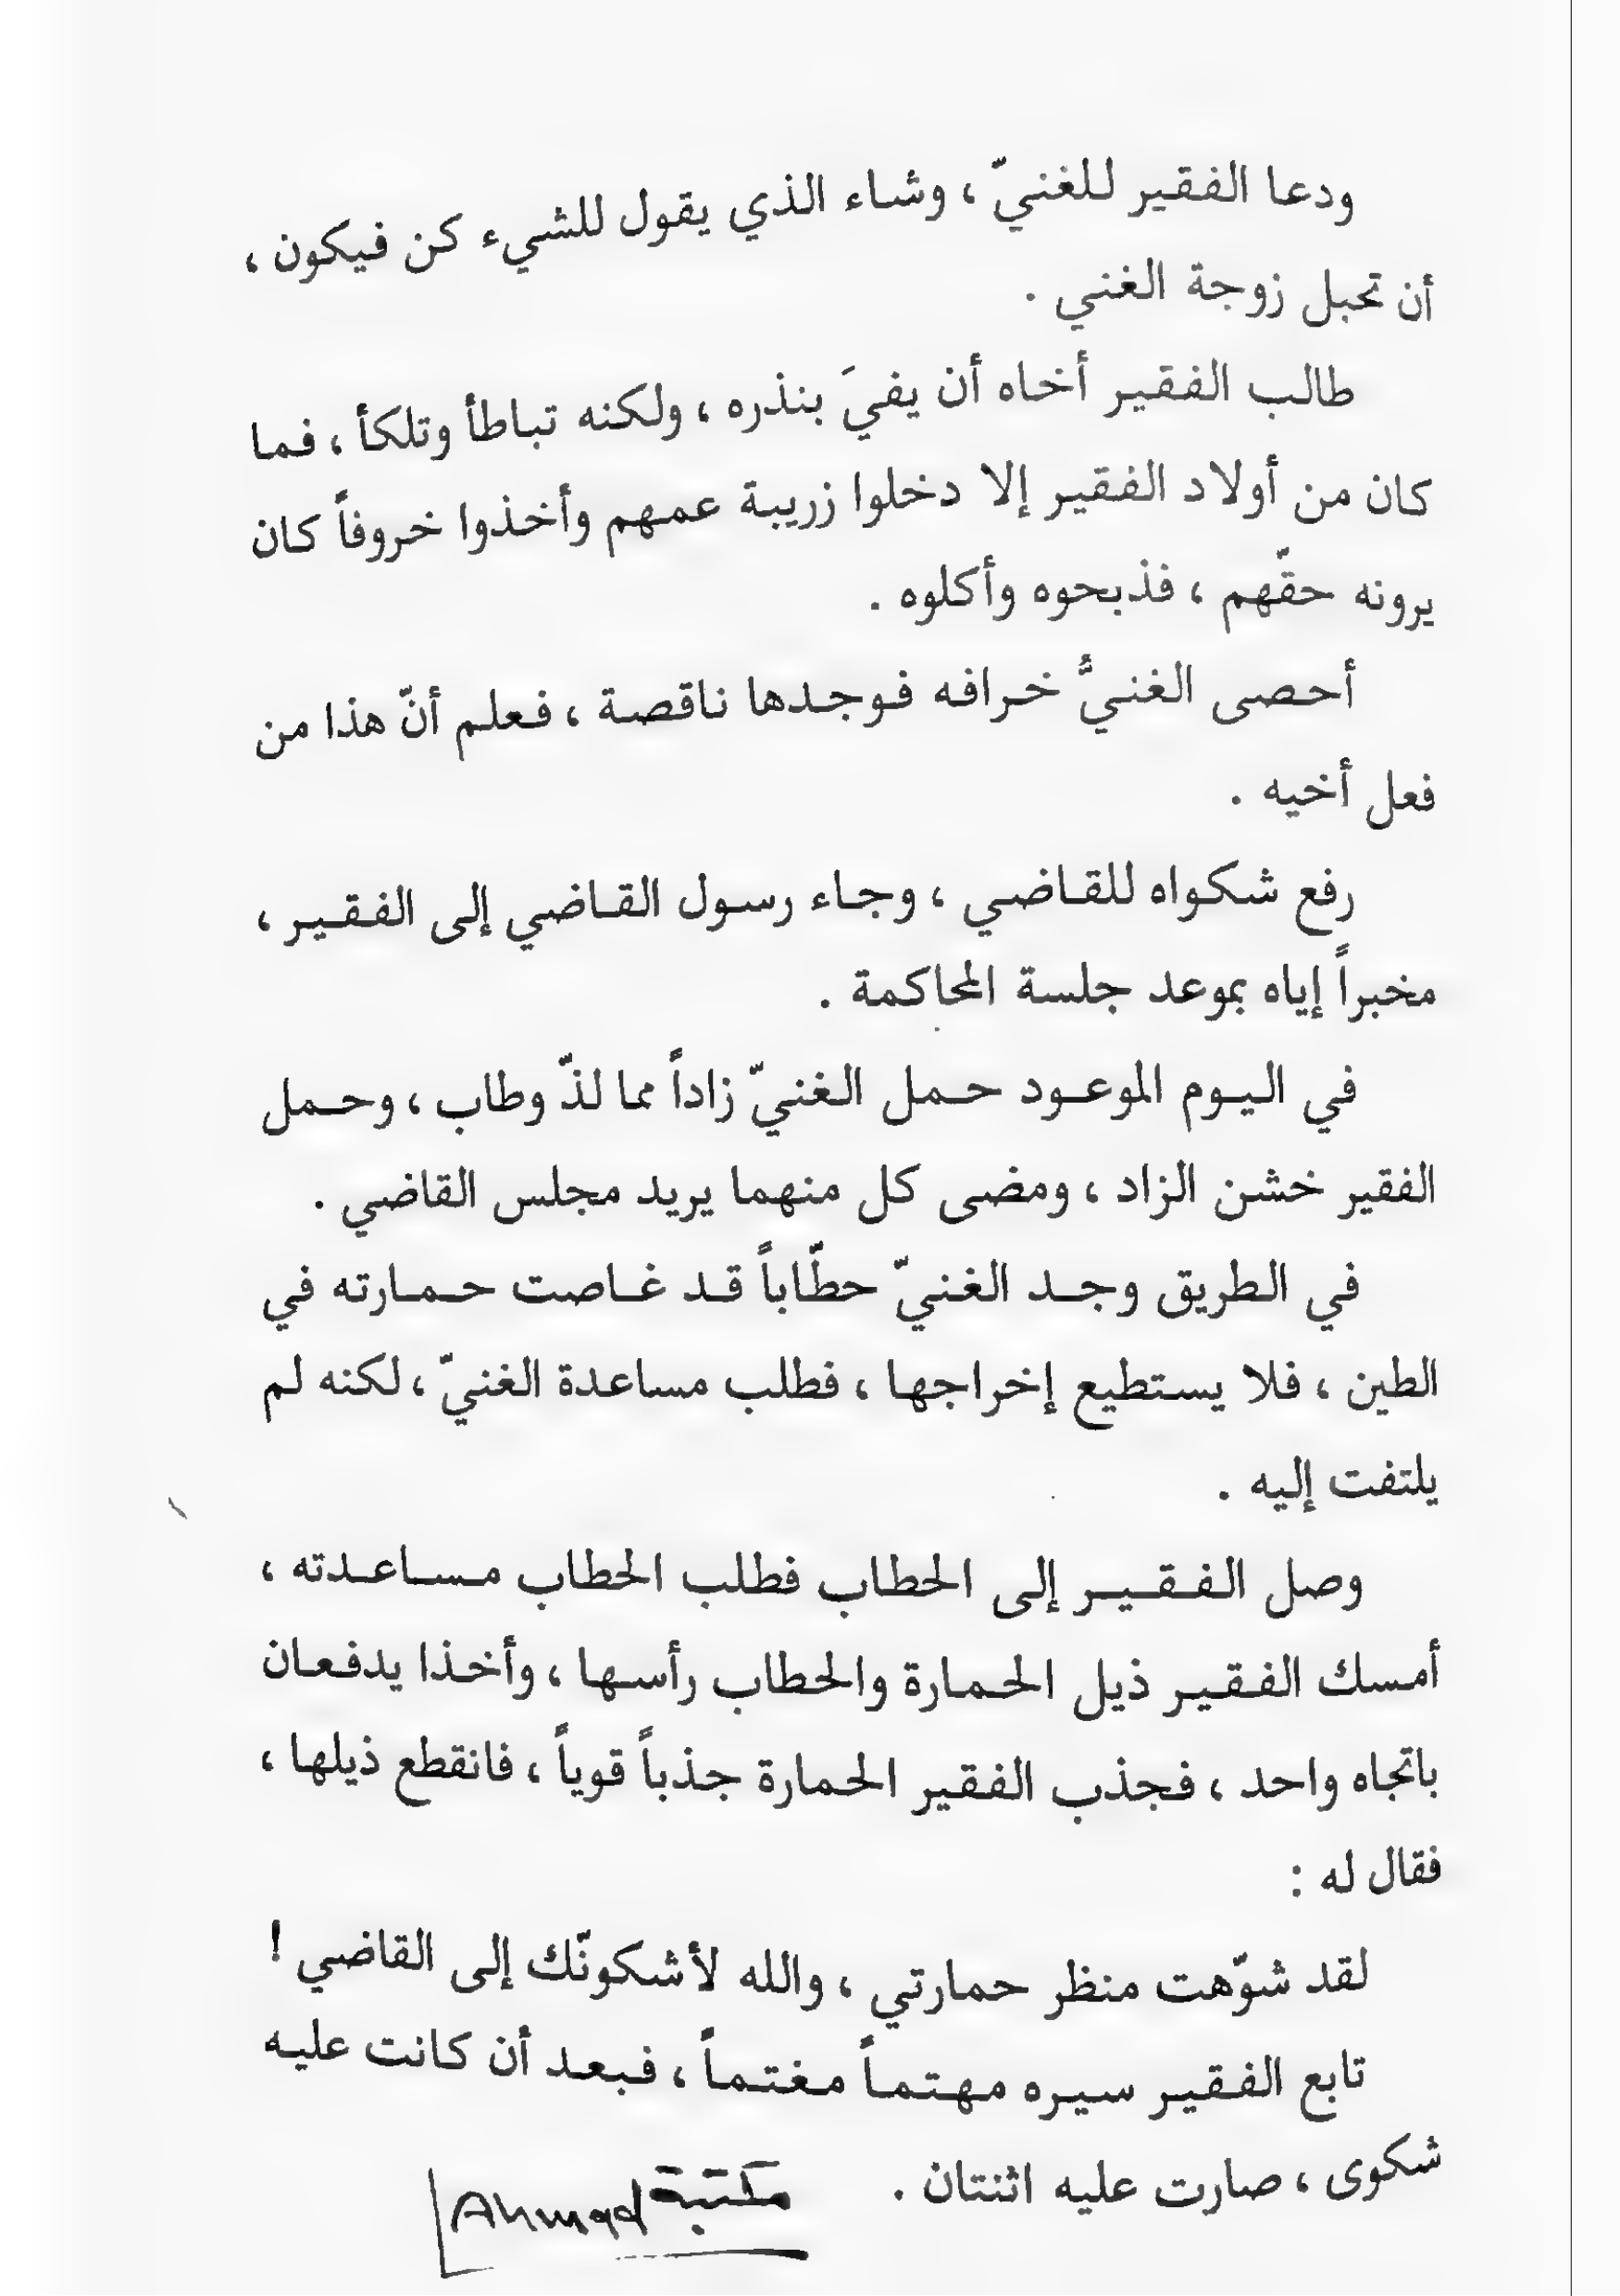 ودعا الفقير للغنيّ ، وشاء الذي يقول للشيء كن فيكون ،
أن تحبل زوجة الغني .
طالب الفقير أخاه أن يفيَ بنذره ، ولكنه تباطأ وتلكأ ، فما
كان من أولاد الفقير إلا دخلوا زريبة عمهم وأخذوا خروفاً كان
يرونه حقّهم ، فذبحوه وأكلوه .
أحصى الغنيُّ خرافه فوجدها ناقصة ، فعلم أنّ هذا من
فعل أخيه .
رفع شكواه للقاضي ، وجاء رسول القاضي إلى الفقير ،
مخبراً إياه بموعد جلسة المحاكمة .
في اليوم الموعود حمل الغنيّ زاداً مما لذّ وطاب ، وحمل
الفقير خشن الزاد ، ومضى كل منهما يريد مجلس القاضي .
في الطريق وجد الغنيّ حطّاباً قد غاصت حمارته في
الطين ، فلا يستطيع إخراجها ، فطلب مساعدة الغنيّ ، لكنه لم
يلتفت إليه .
وصل الفقير إلى الحطاب فطلب الحطاب مساعدته ،
أمسك الفقير ذيل الحمارة والحطاب رأسها ، وأخذا يدفعان
باتجاه واحد ، فجذب الفقير الحمارة جذباً قوياً ، فانقطع ذيلها ،
فقال له :
لقد شوّهت منظر حمارتي ، والله لأشكونّك إلى القاضي !
تابع الفقير سيره مهتماً مغتماً ، فبعد أن كانت عليه
شكوى ، صارت عليه اثنتان .
مكتبة Ahmad